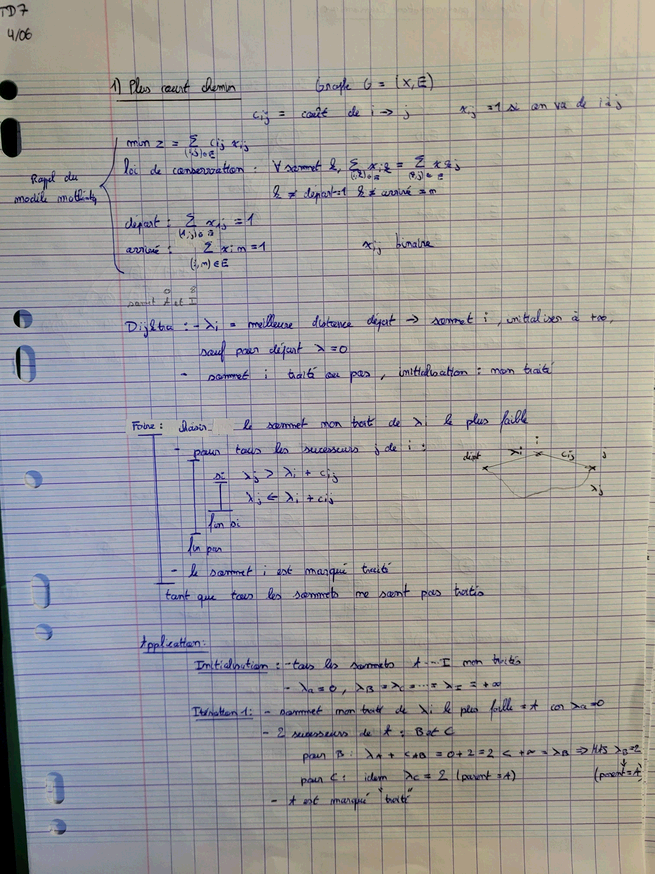 TD7
4/06
1) Plus court chemin Graphe G = (X, E)
cij = coût de i → j xij = 1 si on va de i à j
min z = Σ cij xij
(i,j) ∈ E
Rappel du
modèle
loi de conservation : ∀ sommet k, Σ xik = Σ xkj
(i,k) ∈ E (k,j) ∈ E
k ≠ départ=1 k ≠ arrivé = n
départ : Σ x1j = 1
(1,j) ∈ E
arrivée : Σ xin = 1 xij binaire
(i,n) ∈ E
0 8
A et I
Dijkstra : - λi = meilleure distance départ → sommet i, initialiser à +∞,
sauf pour départ λ = 0
- sommet i traité ou pas, initialisation : non traité
Faire : choisir le sommet non trait de λi le plus faible
- pour tous les successeurs j de i :
si λj > λi + cij
λj ← λi + cij
fin si
fin pour
dépt λi i cij j
λj
- le sommet i est marqué traité
tant que tous les sommets ne sont pas traités
Application :
Initialisation : - tous les sommets A --- I non traités
- λa = 0, λB = λC = ---- = λI = +∞
Itération 1 : - sommet non traité de λi le plus faible = A car λa = 0
- 2 successeurs de A : B et C
pour B : λA + cAB = 0 + 2 = 2 < +∞ = λB ⇒ MAJ λB = 2
(parent = A)
pour C : idem λC = 2 (parent = A)
- A est marqué "traité"